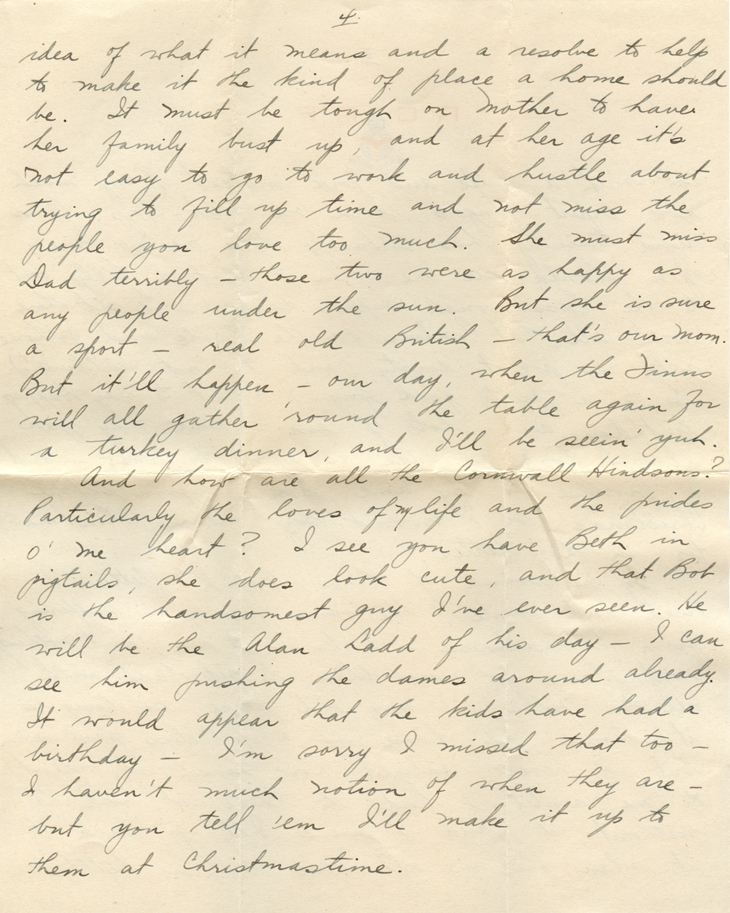 4.
idea of what it means and a resolve to help
to make it the kind of place a home should
be. It must be tough on mother to have
her family bust up, and at her age it's
not easy to go to work and hustle about
trying to fill up time and not miss the
people you love too much. She must miss
Dad terribly – those two were as happy as
any people under the sun. But she is sure
a sport – real old British – that's our mom.
But it'll happen – our day, when the
will all gather 'round the table again for
a turkey dinner, and I'll be seein' yuh.
And how are all the Cornwall Hindsons?
Particularly the loves of my life and the prides
o' me heart? I see you have Beth in
pigtails, she does look cute, and that Bob
is the handsomest guy I've ever seen. He
will be the Alan Ladd of his day – I can
see him pushing the dames around already.
It would appear that the kids have had a
birthday – I'm sorry I missed that too –
I haven't much notion of when they are –
but you tell 'em I'll make it up to
them at Christmastime.